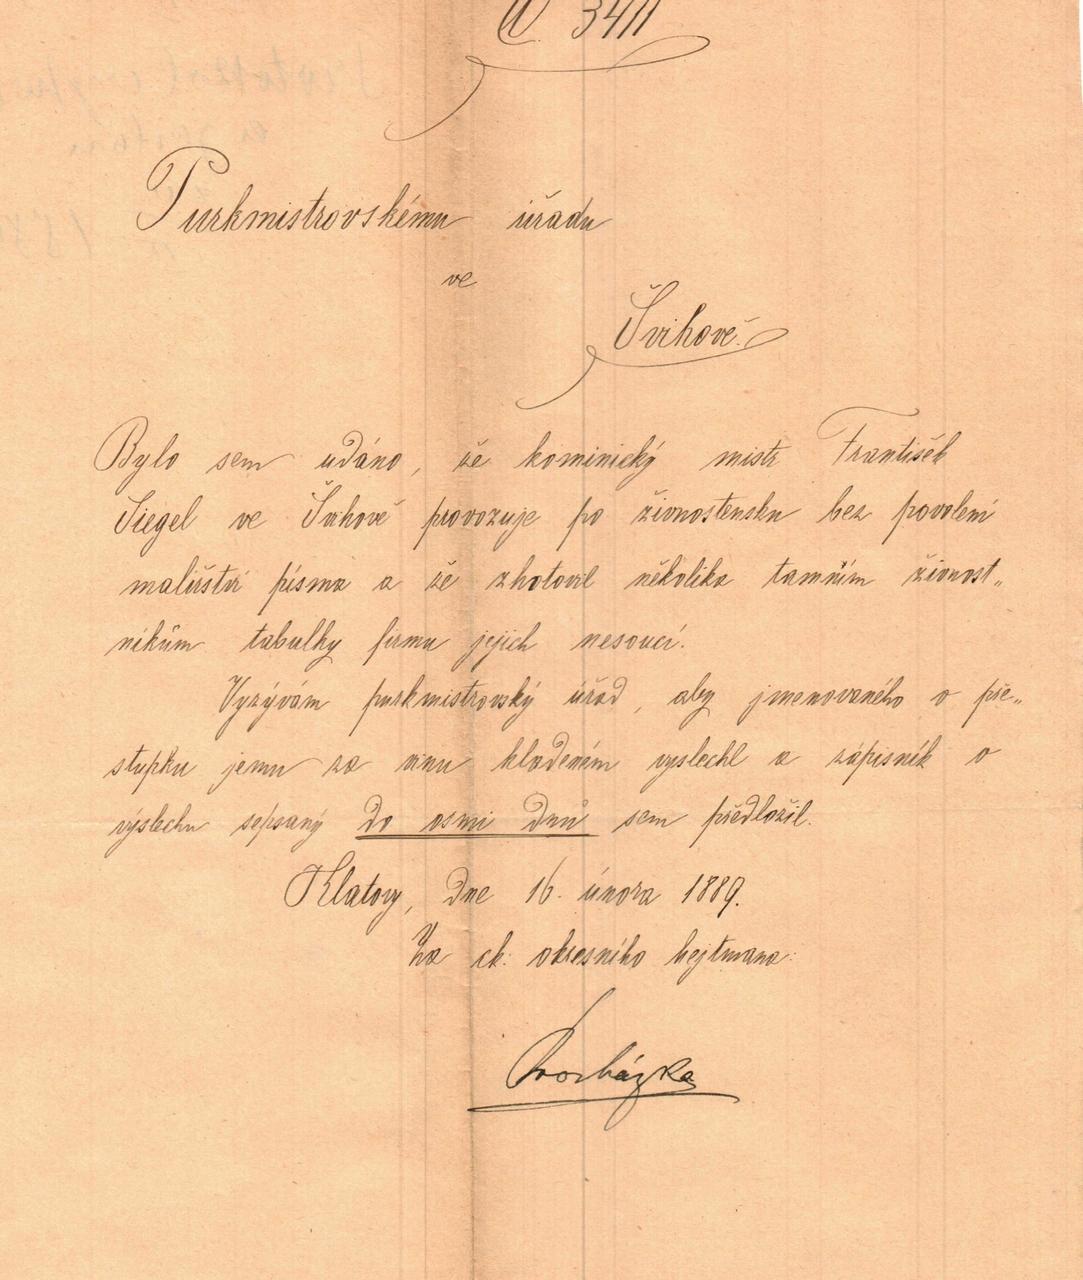 3411
Purkmistrovskému úřadu
ve
Švihově.
Bylo sem udáno, že kominický mistr František
Siegel ve Švihově provozuje po živnostensku bez povolení
malířství písma a že zhotovil několika tamním živnost„
níkům tabulky firmu jejich nesoucí.
Vyzývám purkmistrovský úřad, aby jmenovaného o pře„
stupku jemu za vinu kladeném vyslechl a zápisník o
výslechu sepsaný do osmi dnů sem předložil.
Klatovy, dne 16. února 1889.
Za ck. okresního hejtmana:
Procházka